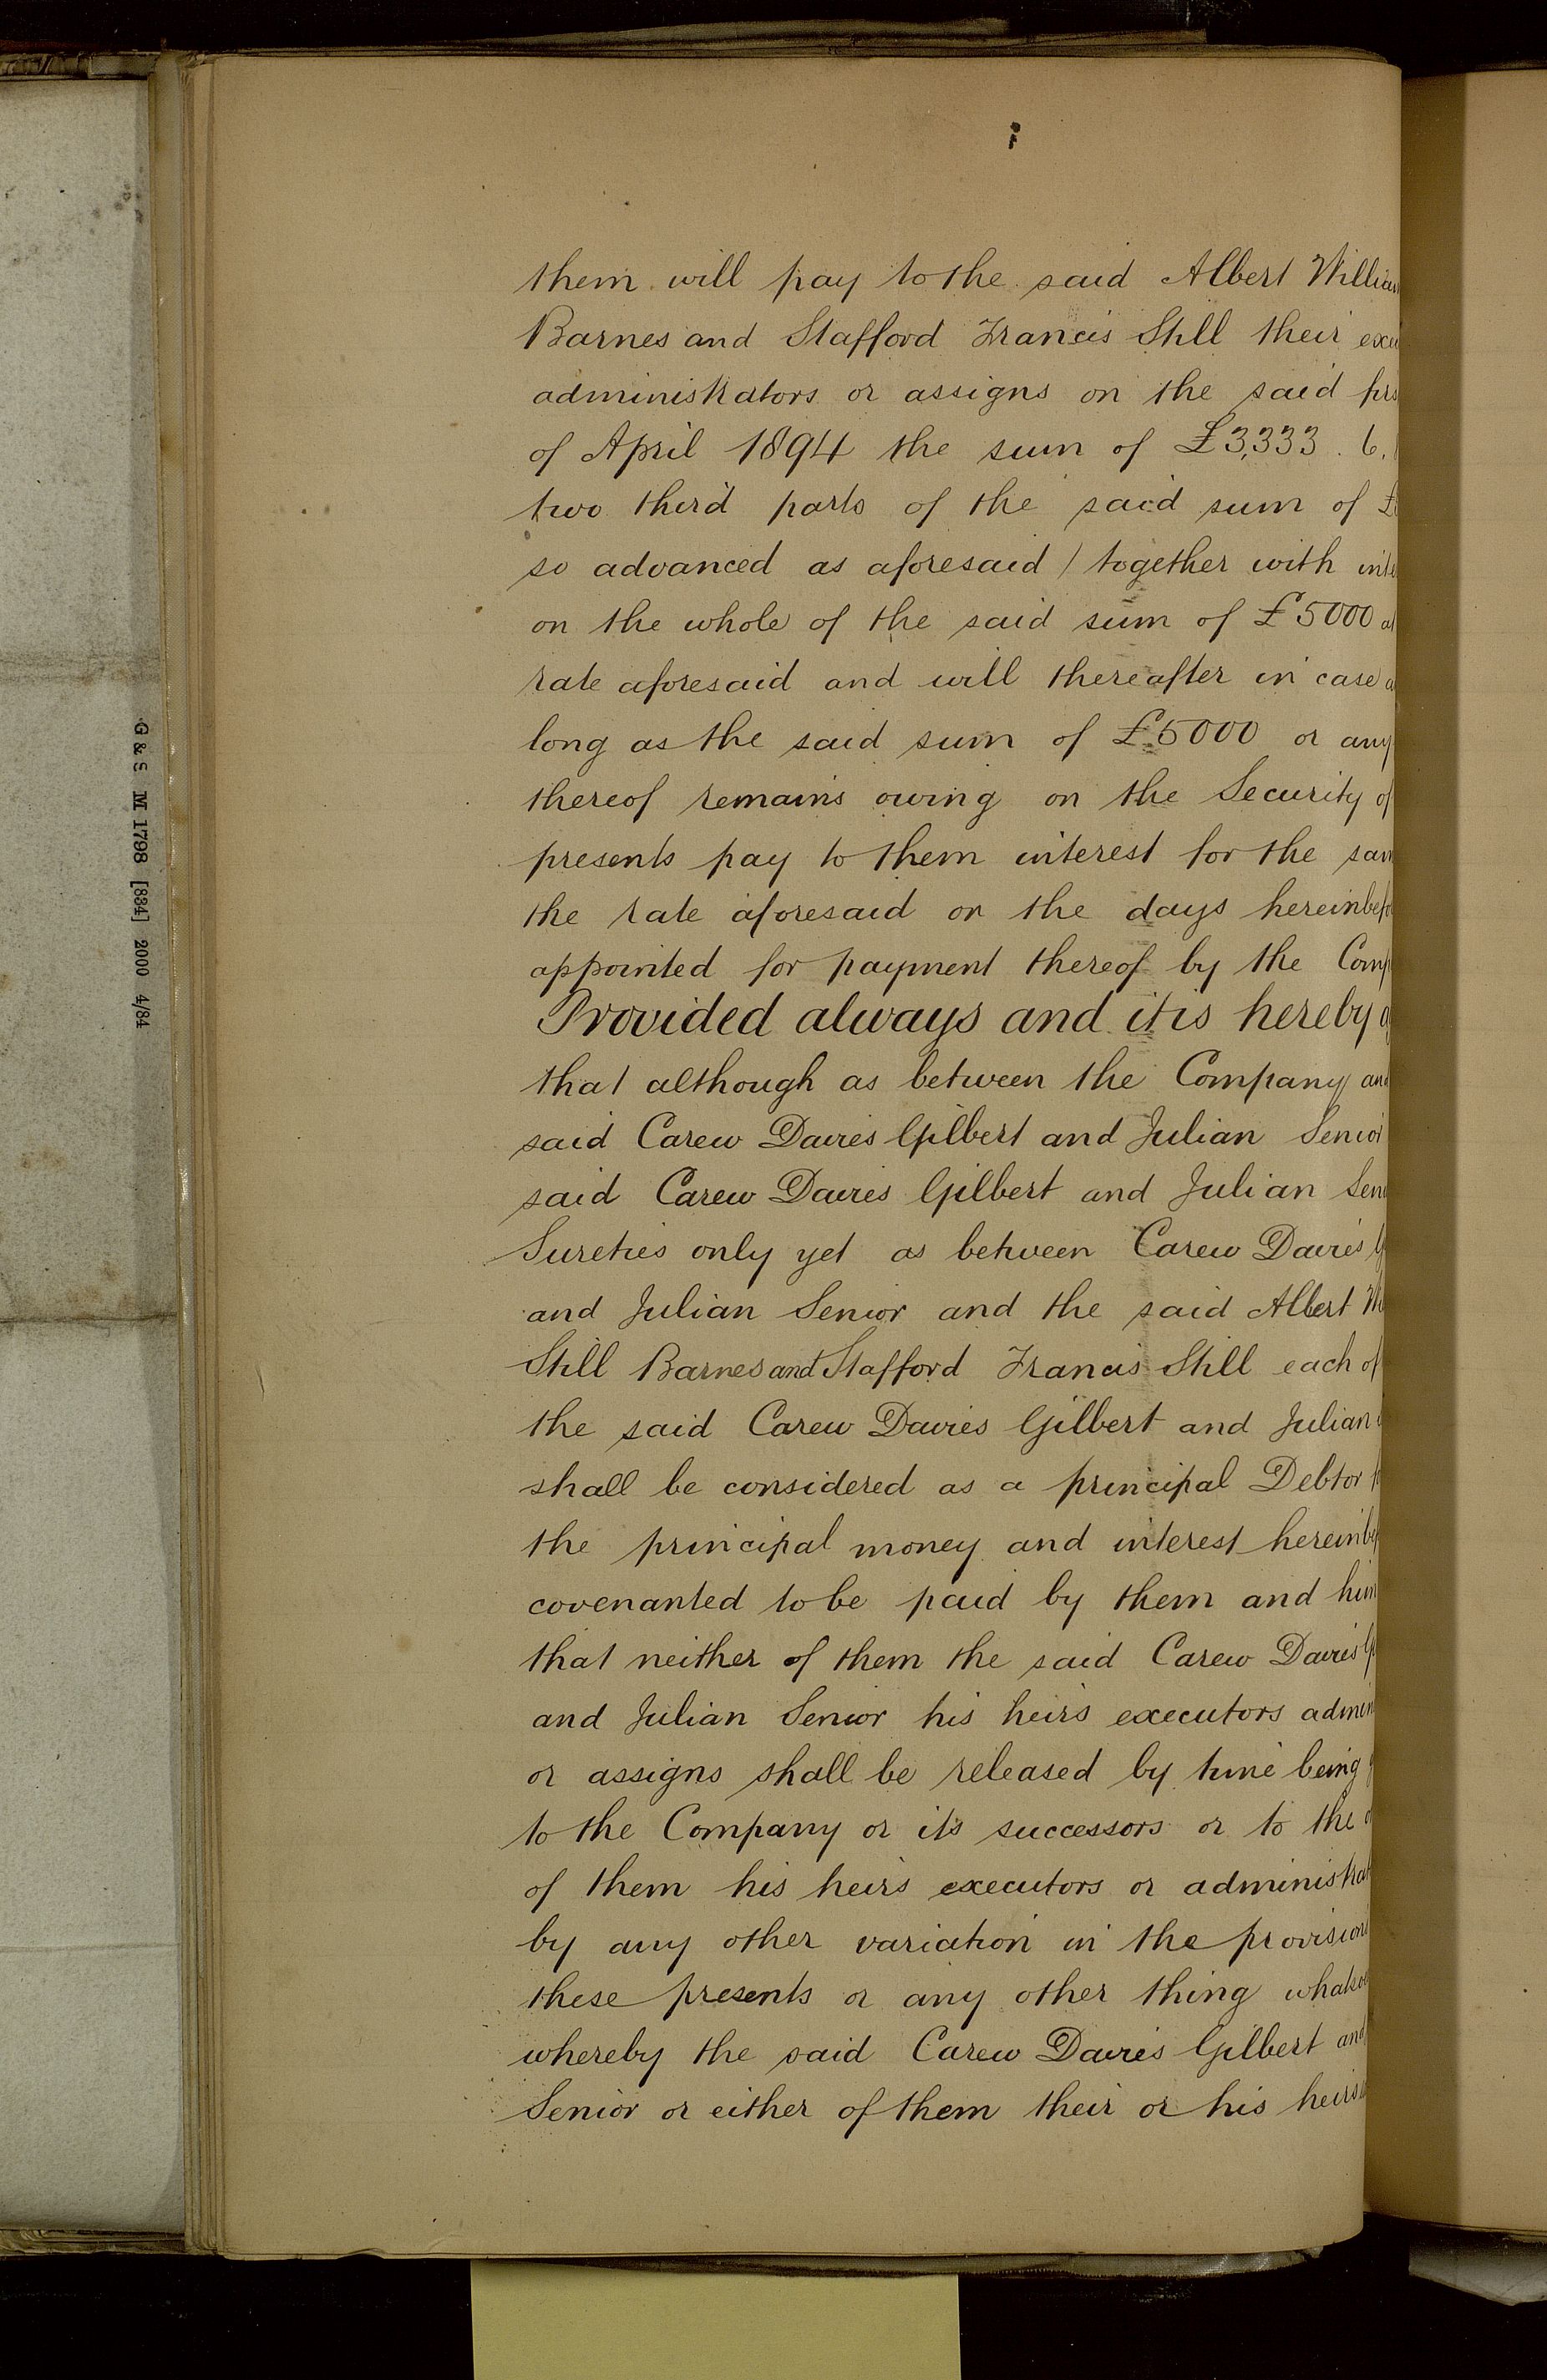 them will pay to the said Albert William
Barnes and Stafford Francis Still their exec
administrators or assigns on the said
of April 1894 the sum of £3,333 . 6.
two third parts of the said sum of £
so advanced as aforesaid) together with inte
on the whole of the said sum of £5000 at
rate aforesaid and will thereafter in case
long as the said sum of £5000 or any
thereof remains owing on the Security of
presents pay to them interest for the sam
the rate aforesaid on the days hereinbefo
appointed for payment thereof by the Comp
Provided always and it is hereby
that although as between the Company and
said Carew Davies Gilbert and Julian Senior
said Carew Davies Gilbert and Julian Seni
Sureties only yet as between Carew Davies G
and Julian Senior and the said Albert
Still Barnes and Stafford Francis Still each of
the said Carew Davies Gilbert and Julian
shall be considered as a principal Debtor
the principal money and interest hereinb
covenanted to be paid by them and him
that neither of them the said Carew Davies G
and Julian Senior his heirs executors admin
or assigns shall be released by time being
to the Company or its successors or to the
of them his heirs executors or administrat
by any other variation in the provisions
these presents or any other thing whatsoe
whereby the said Carew Davies Gilbert and
Senior or either of them their or his heirs
G & S M 1798 [884] 2000 4/84